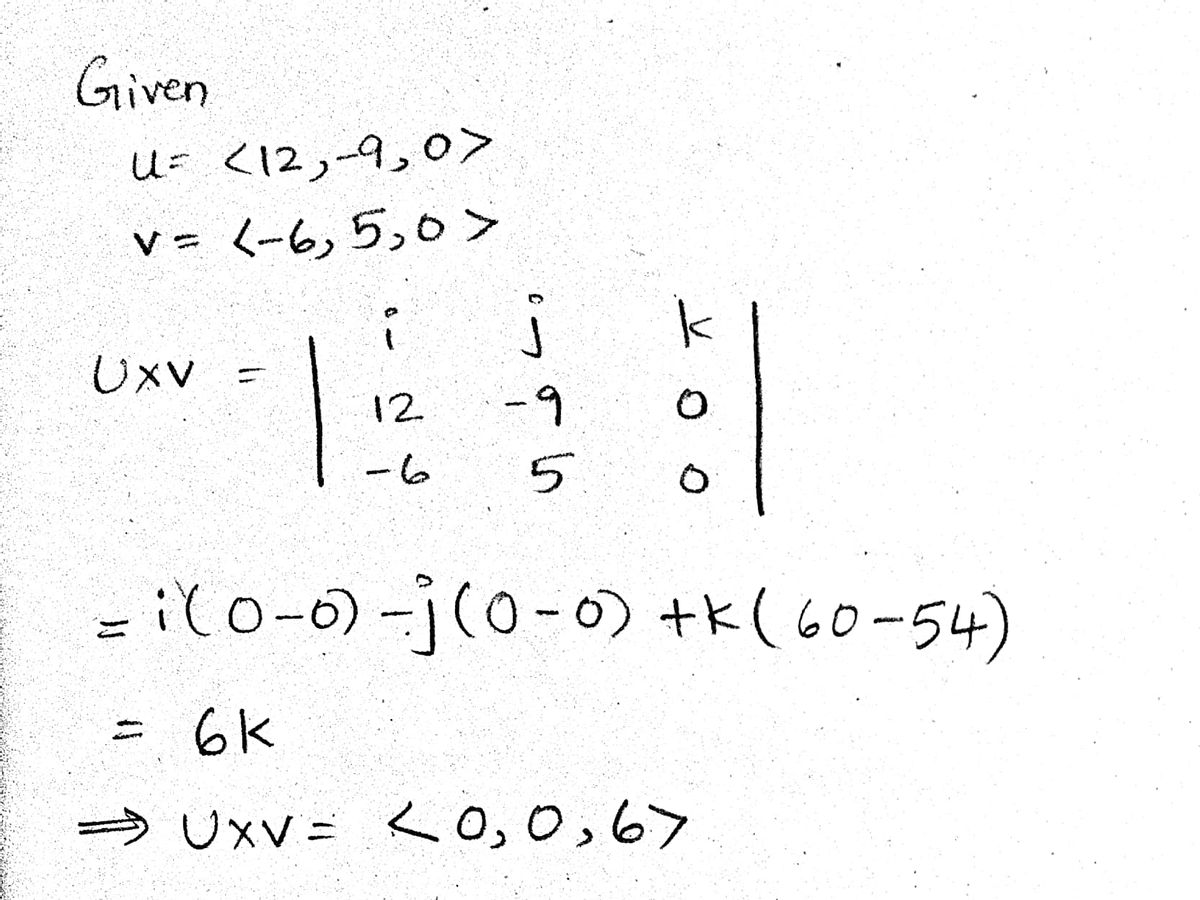 Given
u= <12,-9,0>
v= <-6,5,0>
i j k
UxV =
12 -9 0
-6 5 0
= i(0-0) -j(0-0) +k(60-54)
= 6k
⇒ UxV= <0,0,6>